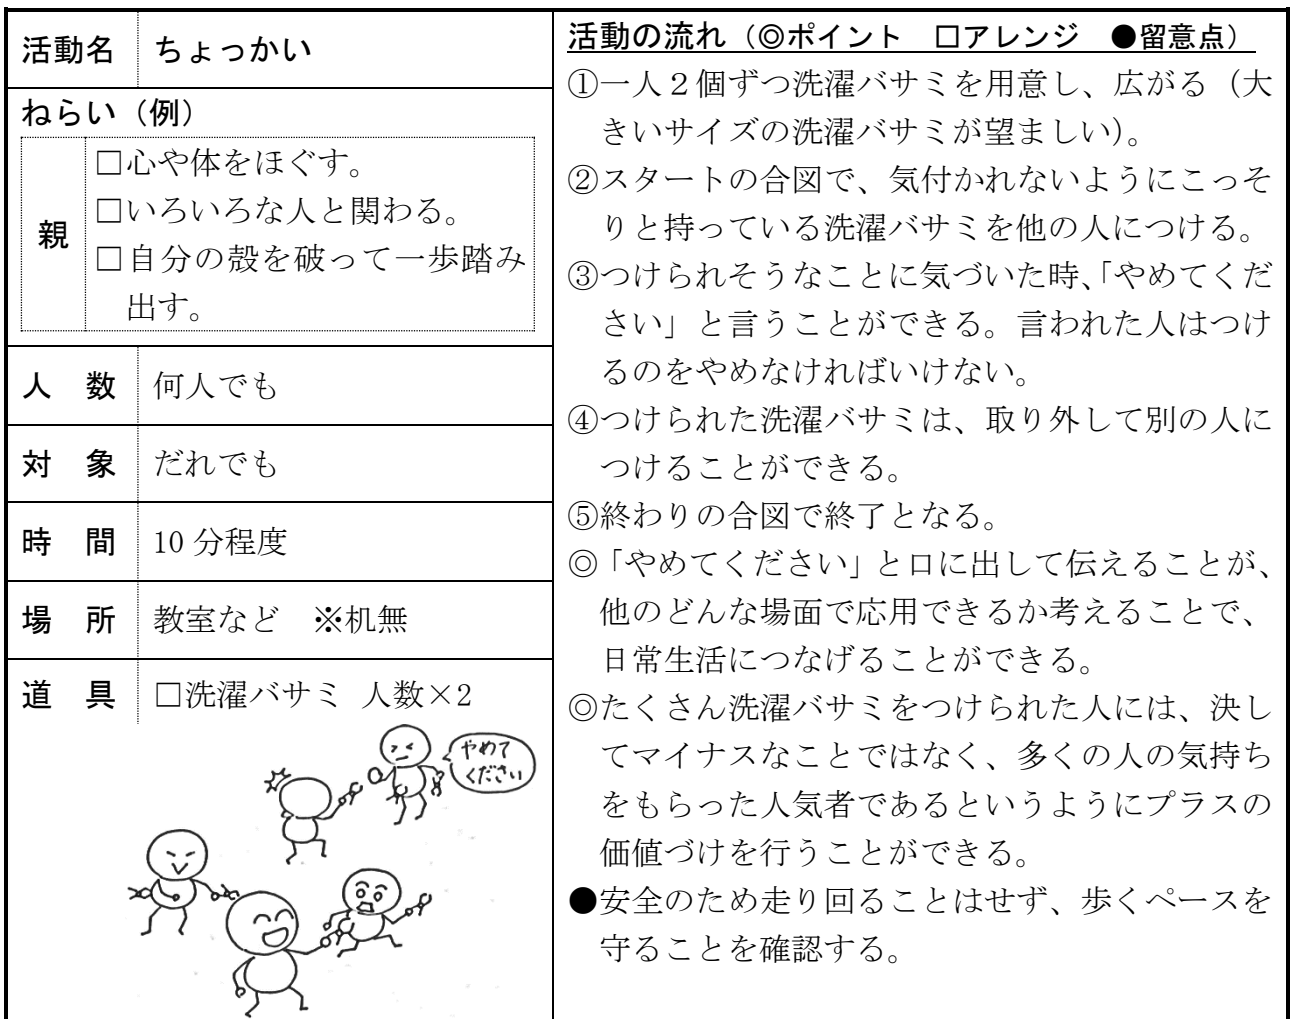 活動名 ちょっかい
ねらい（例）
親
□心や体をほぐす。
□いろいろな人と関わる。
□自分の殻を破って一歩踏み
出す。
人　数 何人でも
対　象 だれでも
時　間 10 分程度
場　所 教室など　※机無
道　具 □洗濯バサミ 人数×2
やめて
ください
活動の流れ（◎ポイント　□アレンジ　●留意点）
①一人２個ずつ洗濯バサミを用意し、広がる（大
きいサイズの洗濯バサミが望ましい）。
②スタートの合図で、気付かれないようにこっそ
りと持っている洗濯バサミを他の人につける。
③つけられそうなことに気づいた時、「やめてくだ
さい」と言うことができる。言われた人はつけ
るのをやめなければいけない。
④つけられた洗濯バサミは、取り外して別の人に
つけることができる。
⑤終わりの合図で終了となる。
◎「やめてください」と口に出して伝えることが、
他のどんな場面で応用できるか考えることで、
日常生活につなげることができる。
◎たくさん洗濯バサミをつけられた人には、決し
てマイナスなことではなく、多くの人の気持ち
をもらった人気者であるというようにプラスの
価値づけを行うことができる。
●安全のため走り回ることはせず、歩くペースを
守ることを確認する。